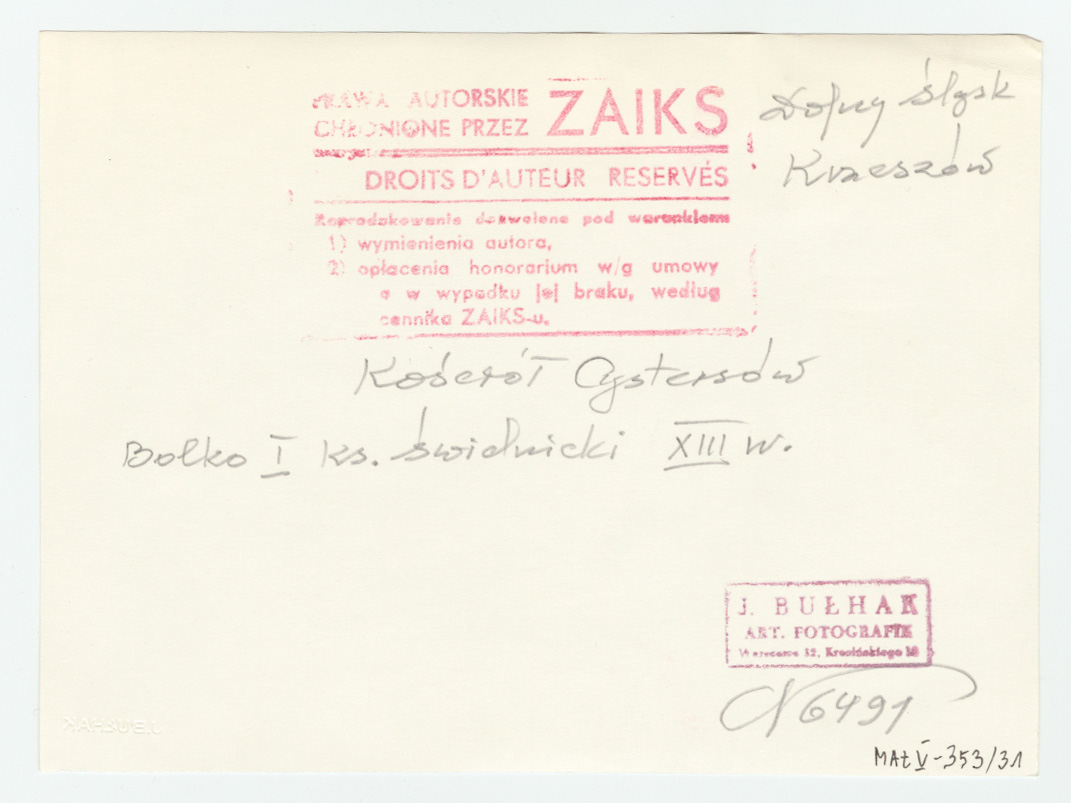 PRAWA AUTORSKIE ZAIKS
CHRONIONE PRZEZ
DROITS D'AUTEUR RESERVÉS
Reprodukowanie dozwolone pod warunkiem
1) wymienienia autora,
2) opłacenia honorarium w/g umowy
a w wypadku jej braku, według
cennika ZAIKS-u.
Dolny Śląsk
Krzeszów
Kościół Cystersów
Bolko I ks. świdnicki XIII w.
J. BUŁHAK
ART. FOTOGRAFIK
Warszawa 32, Krasińskiego
N 6491
J. BUŁHAK
MAŁ V-353/31